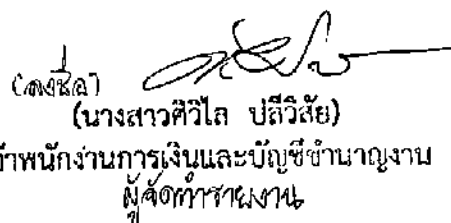 (ลงชื่อ)
(นางสาวศิวิไล ปลีวิสัย)
จ้าพนักงานการเงินและบัญชีชำนาญงาน
ผู้จัดทำรายงาน